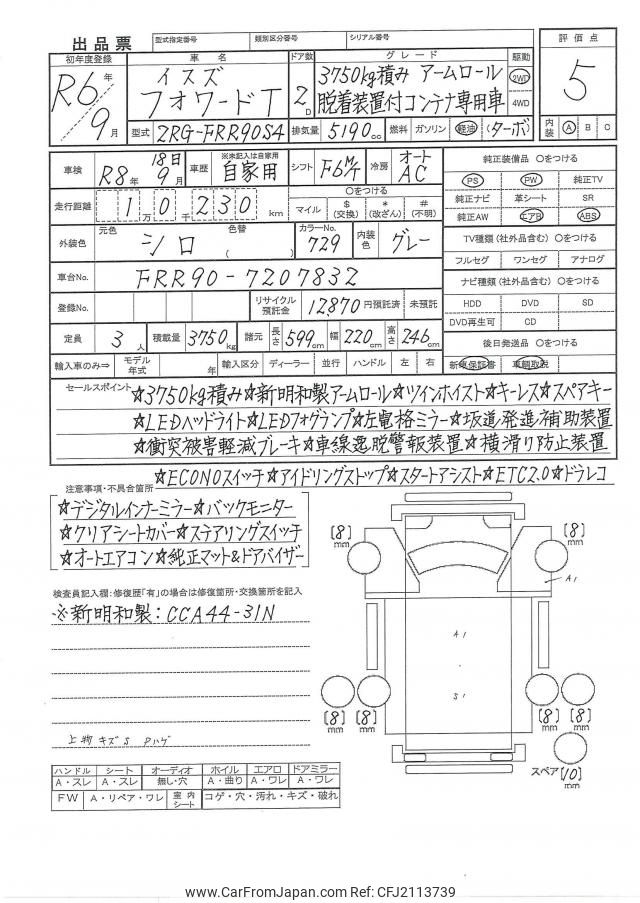 出品票
型式指定番号 類別区分番号 シリアル番号
初年度登録 車名 ドア数 グレード 駆動 評価点
R6年 9月
イスズ フォワードT
2D
3750kg積み アームロール
脱着装置付コンテナ専用車
2WD 4WD
5
型式 2RG-FRR90S4 排気量 5190cc 燃料 ガソリン 軽油 (ターボ) 内装 A B C
車検 R8年 9月 18日 車歴 ※未記入は自家用 自家用 シフト F6M/T 冷房 オートAC 純正装備品 〇をつける
PS PW 純正TV
走行距離 1万0千230km 〇をつける マイル $(交換) *(改ざん) #(不明) 純正ナビ 革シート SR
純正AW エアB ABS
外装色 元色 シロ 色替 ( ) カラーNo. 729 内装色 グレー TV種類(社外品含む)〇をつける
フルセグ ワンセグ アナログ
車台No. FRR90-7207832 ナビ種類(社外品含む)〇をつける
登録No. リサイクル預託金 12,870円預託済 未預託 HDD DVD SD
DVD再生可 CD
定員 3人 積載量 3750kg 諸元 長さ 599cm 幅 220cm 高さ 246cm 後日発送品 〇をつける
輸入車のみ⇒ モデル年式 年 輸入区分 ディーラー 並行 ハンドル 左 右 新車保証書 車輌取説
セールスポイント ☆3750kg積み☆新明和製アームロール☆ツインホイスト☆キーレス☆スペアキー
☆LEDヘッドライト☆LEDフォグランプ☆左電格ミラー☆坂道発進補助装置
☆衝突被害軽減ブレーキ☆車線逸脱警報装置☆横滑り防止装置
☆ECONOスイッチ☆アイドリングストップ☆スタートアシスト☆ETC2.0☆ドラレコ
注意事項・不具合箇所
☆デジタルインナーミラー☆バックモニター
☆クリアシートカバー☆ステアリングスイッチ
☆オートエアコン☆純正マット&ドアバイザー
検査員記入欄:修復歴「有」の場合は修復箇所・交換箇所を記入
※新明和製:CCA44-31N
上物 キズ S Pハゲ
[8]mm [8]mm
A1
A1
S1
[8]mm [8]mm [8]mm [8]mm
スペア[10]mm
ハンドル シート オーディオ ホイル エアロ ドアミラー
A・スレ A・スレ 無し・穴 A・曲り A・ワレ A・ワレ
FW A・リペア・ワレ 室内シート コゲ・穴・汚れ・キズ・破れ
www.CarFromJapan.com Ref: CFJ2113739